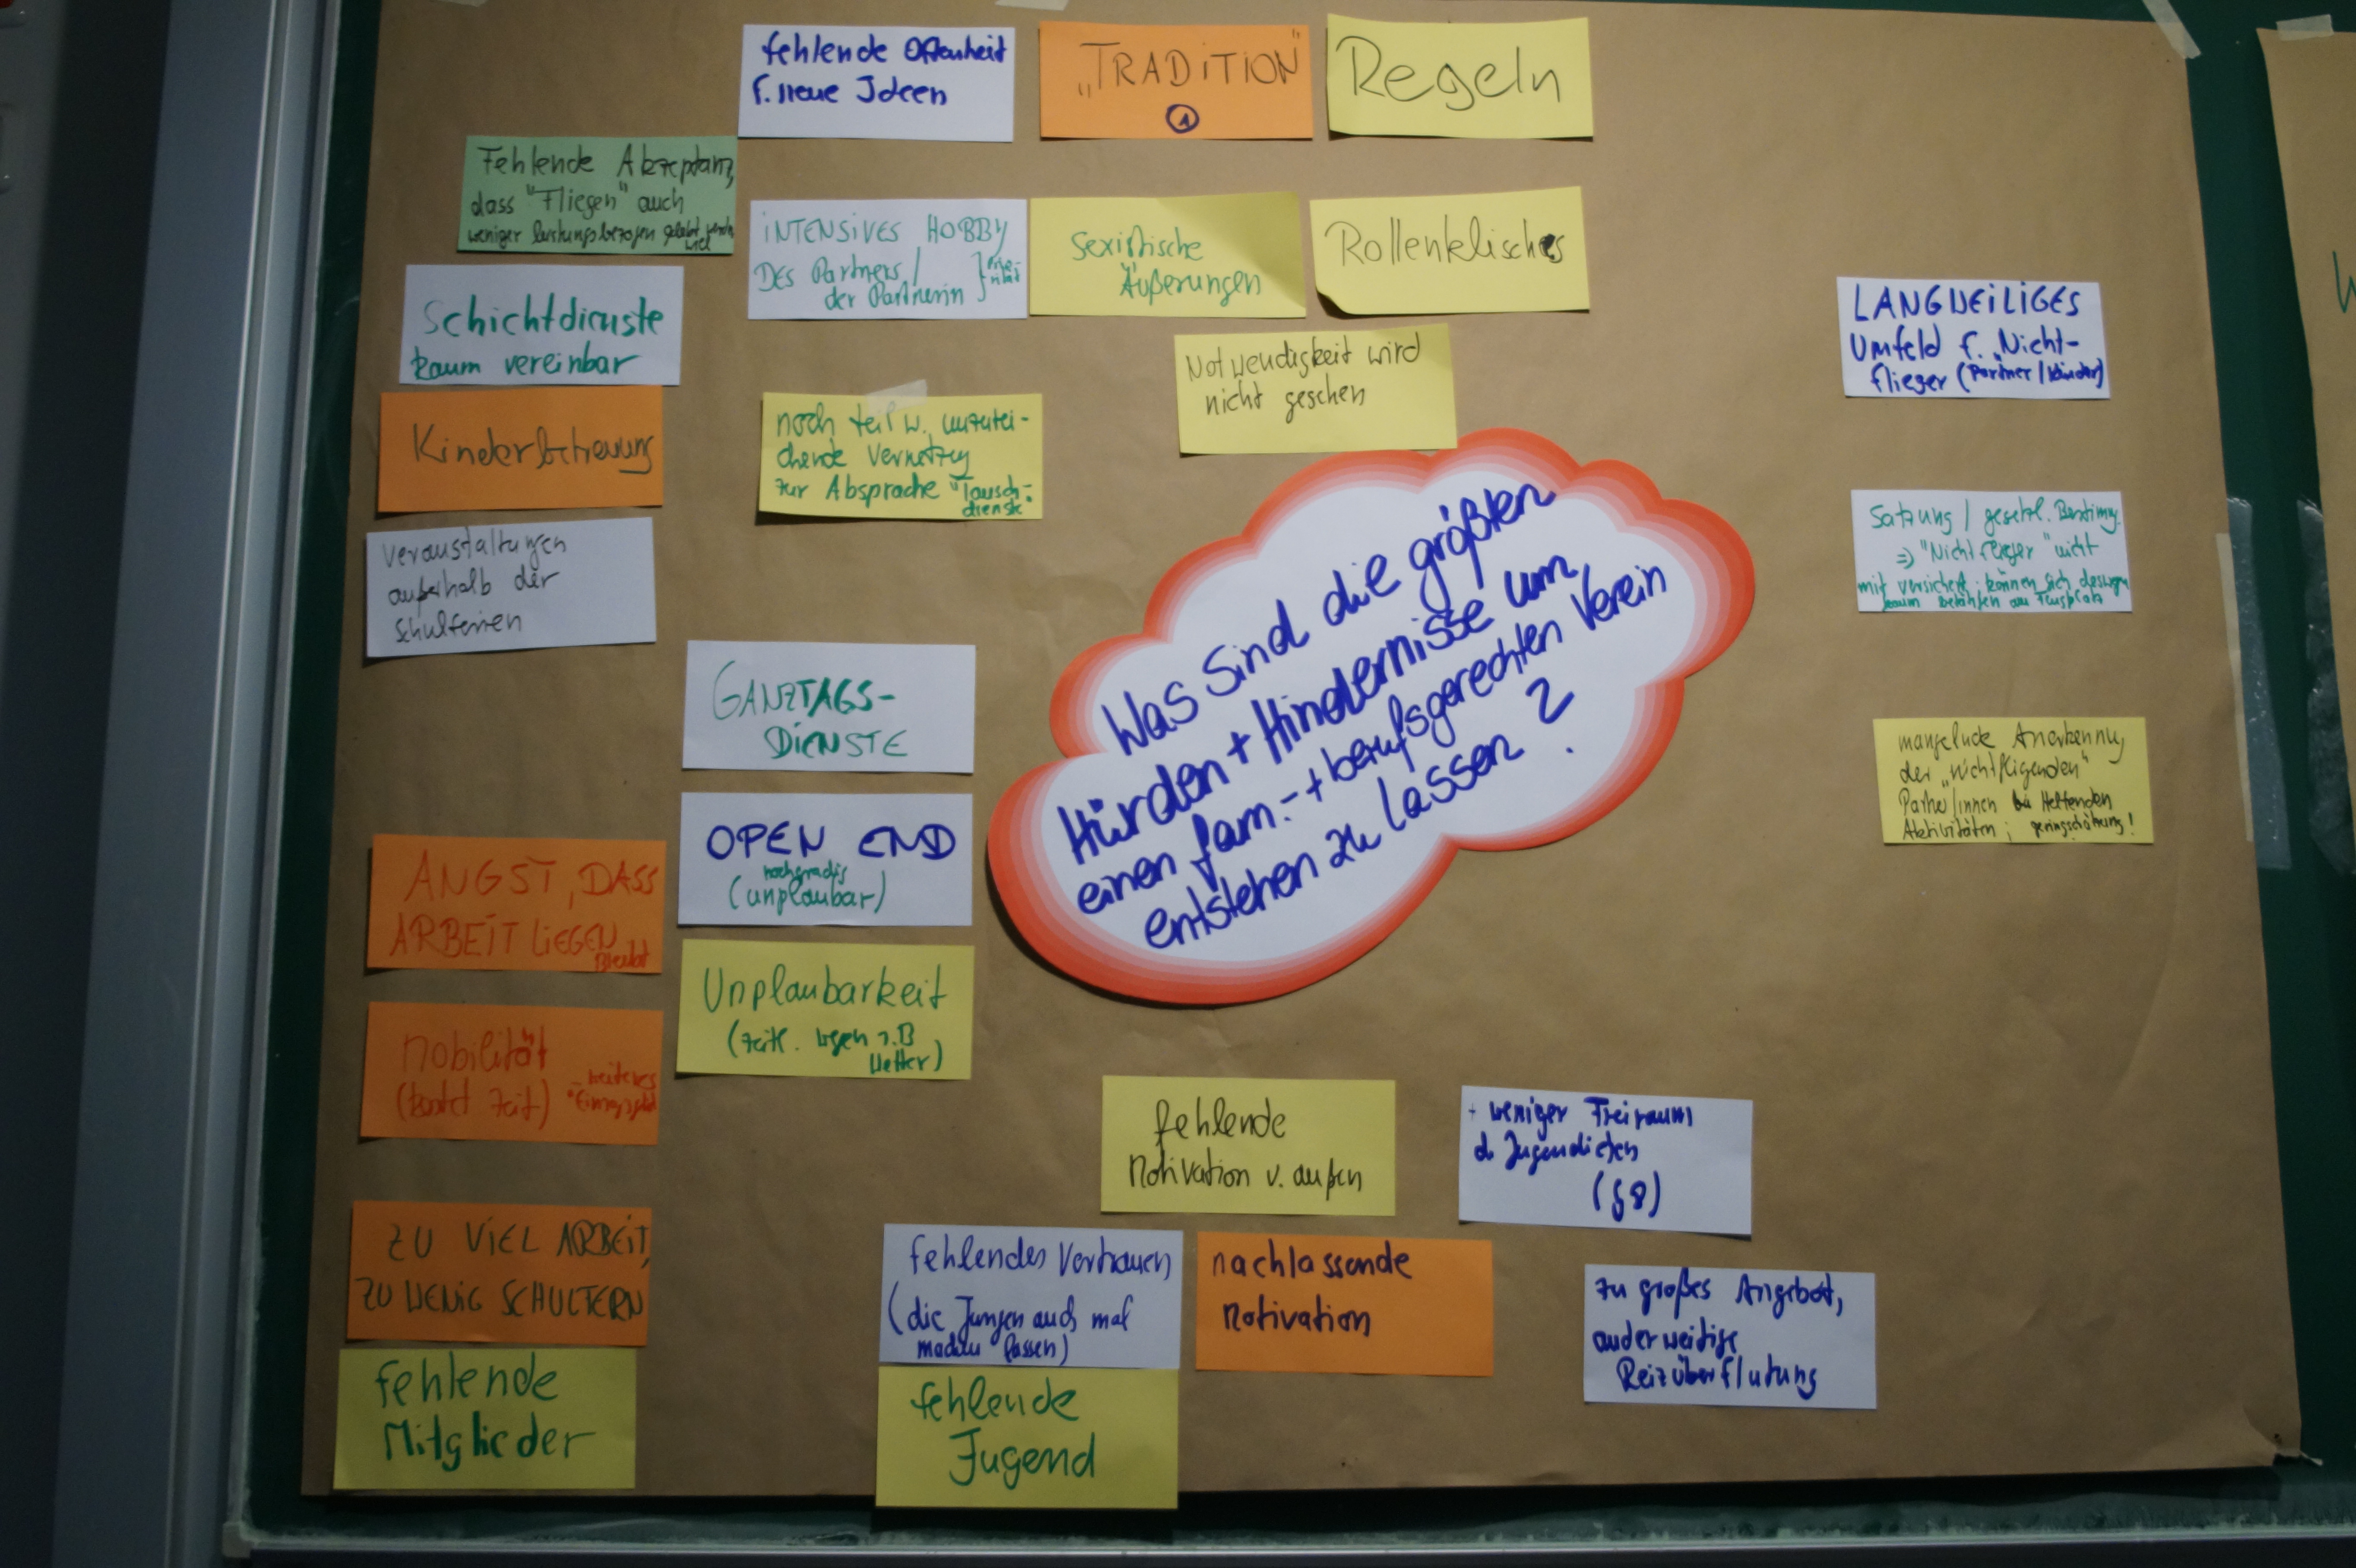 fehlende Offenheit
f. neue Ideen
„TRADITION"
1
Regeln
Fehlende Akzeptanz,
dass "Fliegen" auch
weniger leistungsbezogen gelebt werden
will
INTENSIVES HOBBY
DES Partners /
der Partnerin
Sexistische
Äußerungen
Rollenklischees
Schichtdienste
kaum vereinbar
Notwendigkeit wird
nicht gesehen
LANGWEILIGES
Umfeld f. „Nicht-
flieger (Partner / Kinder)
Kinderbetreuung
noch teilw. unzurei-
chende Vernetzung
zur Absprache "Tausch-
dienste"
Veranstaltungen
außerhalb der
Schulferien
Satzung / gesetzl. Bestimmg.
=> "Nichtflieger" nicht
mit versichert; können sich deswegen
kaum betätigen am Flugplatz
Was sind die größten
Hürden + Hindernisse um
einen fam.- + berufsgerechten Verein
entstehen zu lassen ?
GANZTAGS-
DIENSTE
mangelnde Anerkennung
der „nichtfliegenden"
Partner/innen bei Helfenden
Aktivitäten; geringschätzung!
OPEN END
hochgradig
(unplanbar)
ANGST, DASS
ARBEIT LIEGEN
Bleibt
Unplanbarkeit
(zeitl. wegen z.B
Wetter)
Mobilität
(kostet Zeit)
fehlende
Motivation v. außen
+ weniger Freiraum
d. Jugendlichen
(G8)
ZU VIEL ARBEIT,
ZU WENIG SCHULTERN
fehlendes Vertrauen
(die Jungen auch mal
machen lassen)
nachlassende
Motivation
zu großes Angebot,
anderweitige
Reizüberflutung
fehlende
Mitglieder
fehlende
Jugend